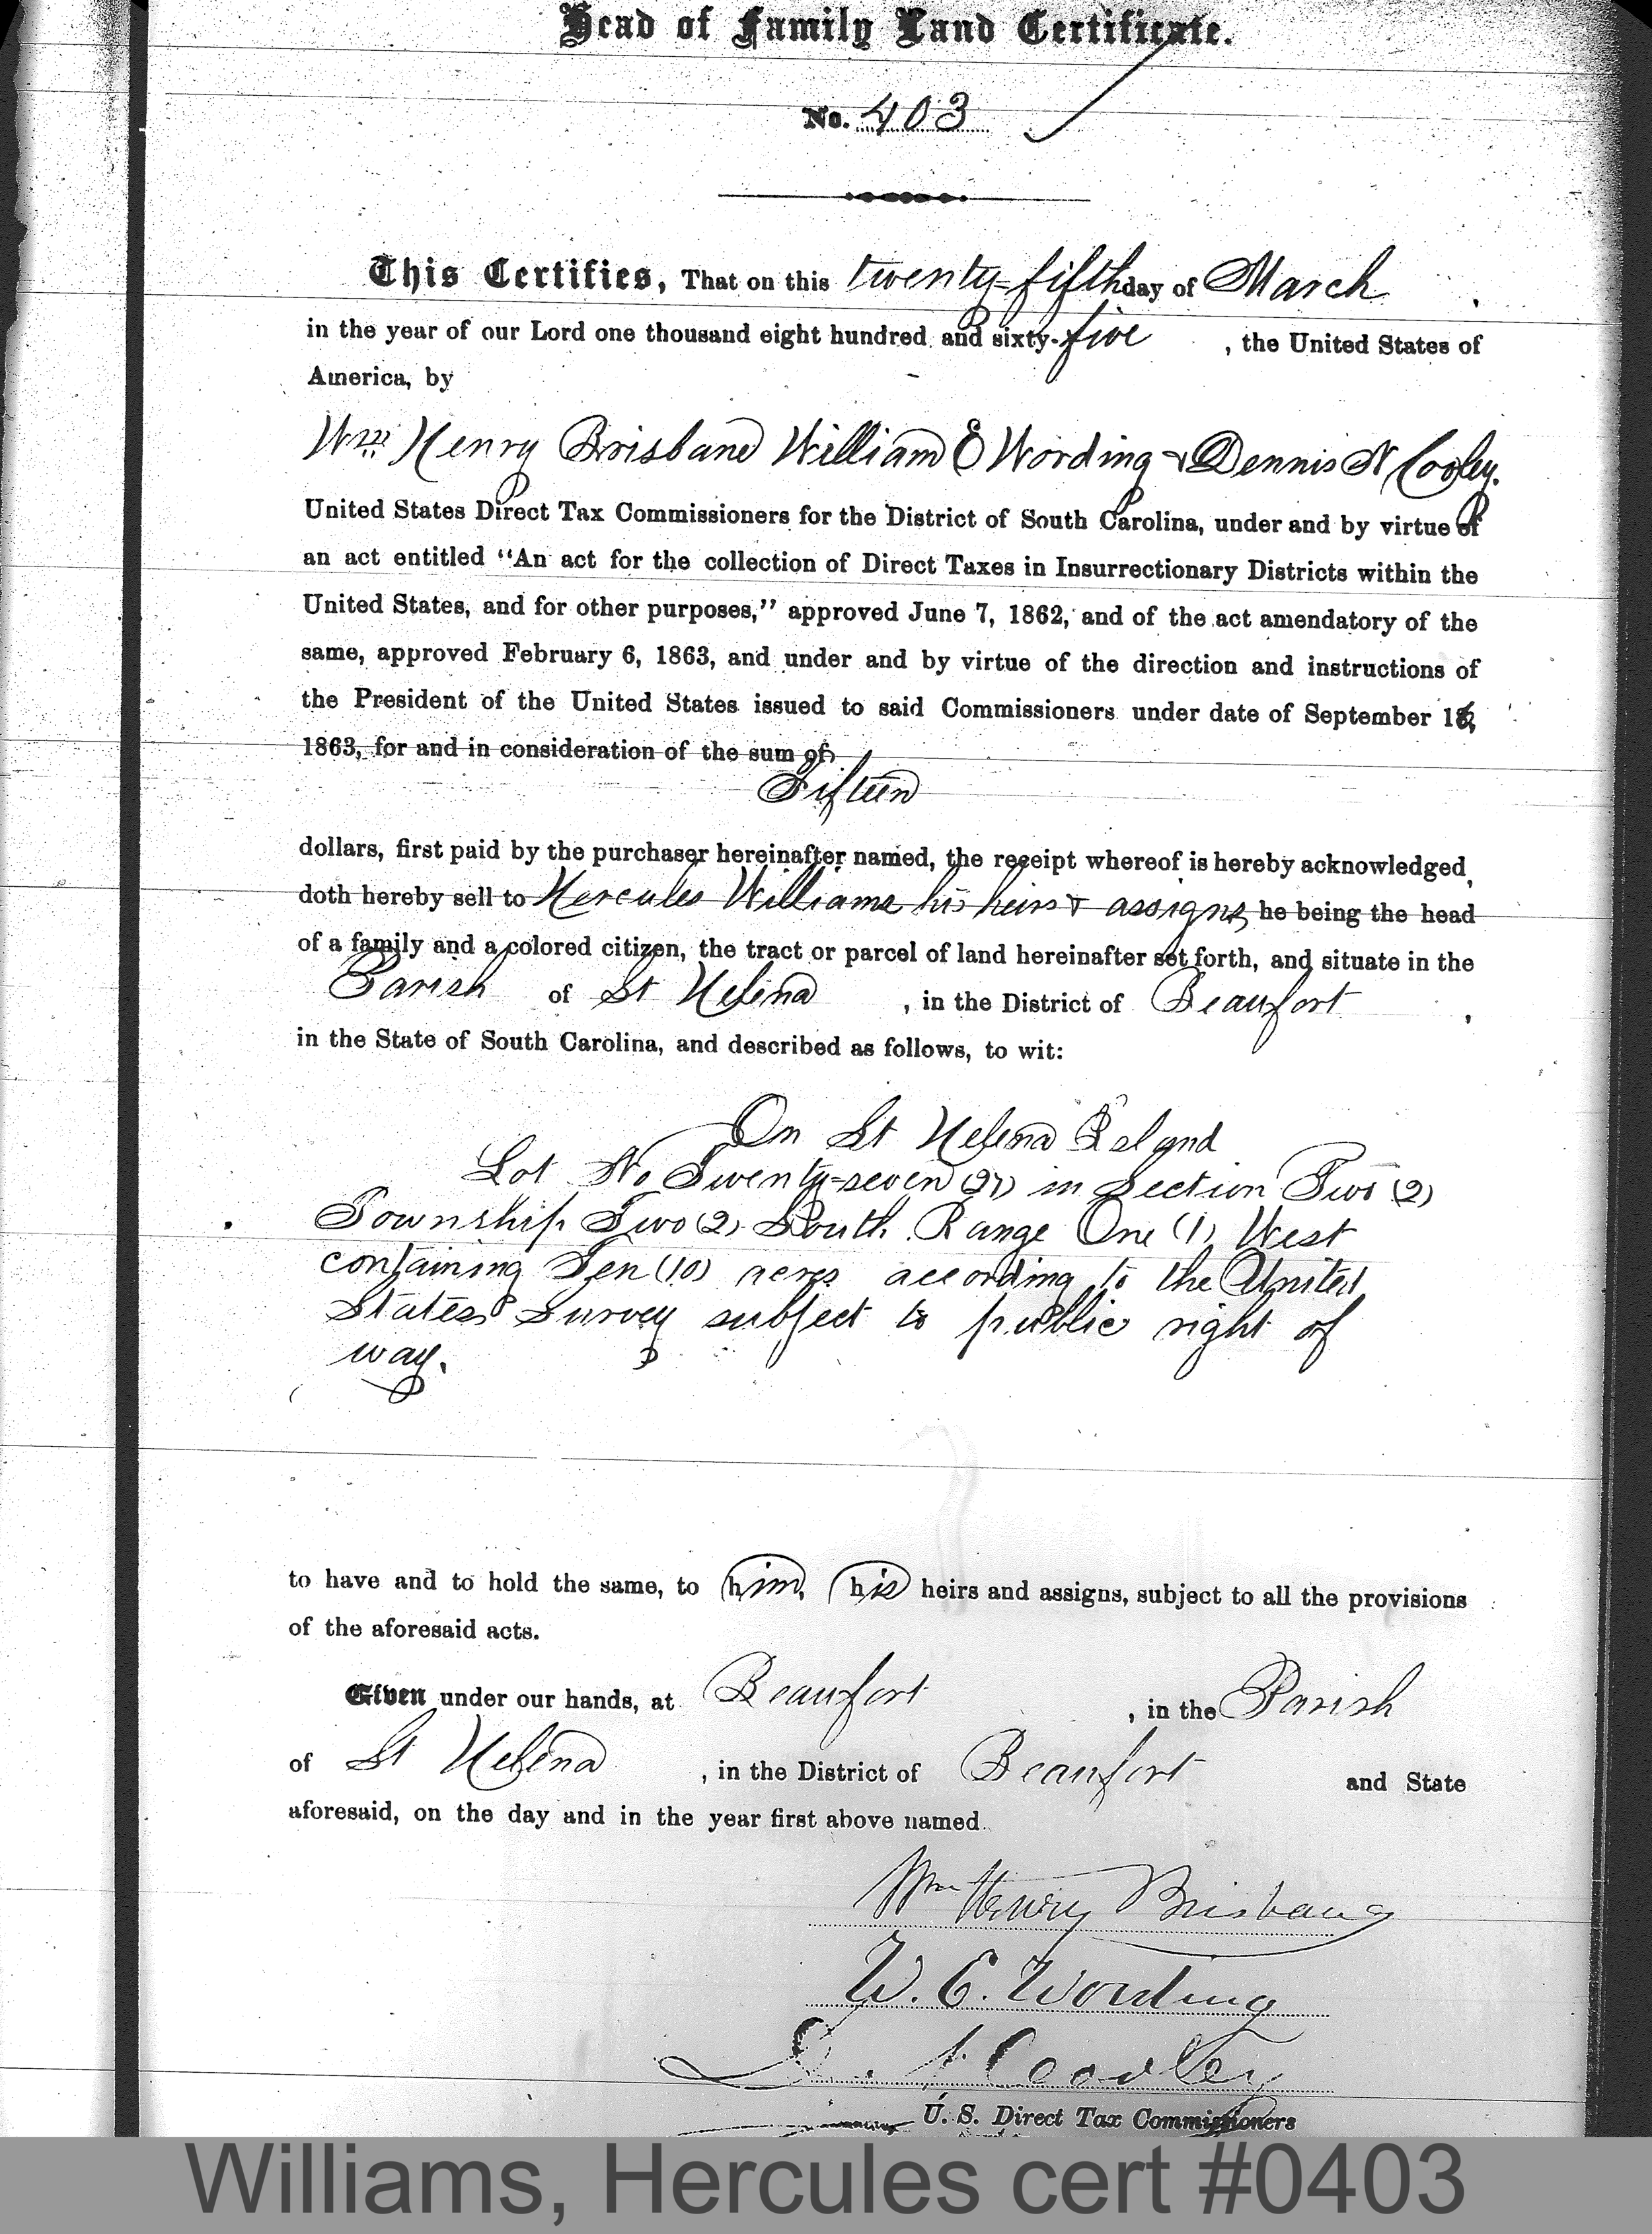 Head of Family Land Certificate.
No. 403
This Certifies, That on this twenty-fifth day of March
in the year of our Lord one thousand eight hundred and sixty-five , the United States of
America, by
Wm Henry Brisbane William E Wording & Dennis N Cooley.
United States Direct Tax Commissioners for the District of South Carolina, under and by virtue of
an act entitled "An act for the collection of Direct Taxes in Insurrectionary Districts within the
United States, and for other purposes," approved June 7, 1862, and of the act amendatory of the
same, approved February 6, 1863, and under and by virtue of the direction and instructions of
the President of the United States issued to said Commissioners under date of September 16,
1863, for and in consideration of the sum of
Fifteen
dollars, first paid by the purchaser hereinafter named, the receipt whereof is hereby acknowledged,
doth hereby sell to Hercules Williams his heirs & assigns, he being the head
of a family and a colored citizen, the tract or parcel of land hereinafter set forth, and situate in the
Parish of St Helena , in the District of Beaufort ,
in the State of South Carolina, and described as follows, to wit:
On St Helena Island
Lot No Twenty-seven (27) in Section Two (2)
Township Two (2) South Range One (1) West
containing Ten (10) acres according to the United
States Survey subject to public right of
way.
to have and to hold the same, to him, his heirs and assigns, subject to all the provisions
of the aforesaid acts.
Given under our hands, at Beaufort , in the Parish
of St Helena , in the District of Beaufort and State
aforesaid, on the day and in the year first above named.
Wm Henry Brisbane
W. E. Wording
D. N. Cooley
U. S. Direct Tax Commissioners
Williams, Hercules cert #0403